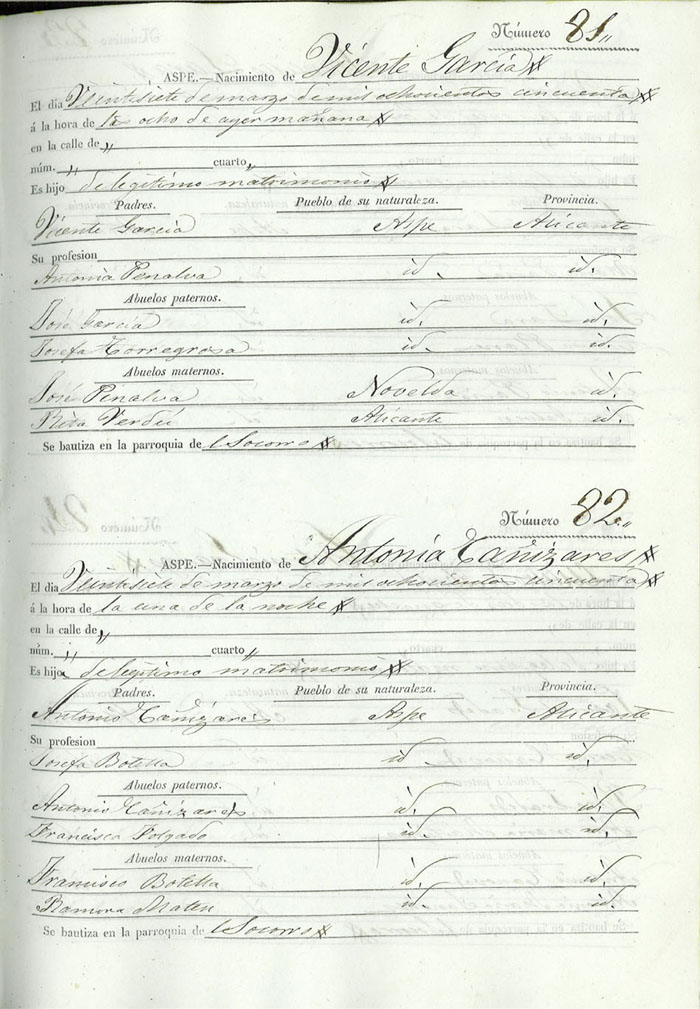 Número 81,,
ASPE.—Nacimiento de Vicente García
El dia Veintisiete de marzo de mil ochocientos cincuenta
á la hora de las ocho de ayer mañana
en la calle de ,,
núm. ,, cuarto ,,
Es hijo de legítimo matrimonio
Padres. Pueblo de su naturaleza. Provincia.
Vicente García Aspe Alicante
Su profesion
Antonia Penalva id. id.
Abuelos paternos.
José García id. id.
Josefa Torregrosa id. id.
Abuelos maternos.
José Penalva Novelda id.
Rita Verdú Alicante id.
Se bautiza en la parroquia de l Socorro
Número 82,,
ASPE.—Nacimiento de Antonia Cañizares
El dia Veintisiete de marzo de mil ochocientos cincuenta
á la hora de la una de la noche
en la calle de ,,
núm. ,, cuarto ,,
Es hija de legítimo matrimonio
Padres. Pueblo de su naturaleza. Provincia.
Antonio Cañizares Aspe Alicante
Su profesion
Josefa Botella id. id.
Abuelos paternos.
Antonio Cañizares id. id.
Francisca Folgado id. id.
Abuelos maternos.
Francisco Botella id. id.
Ramona Mateu id. id.
Se bautiza en la parroquia de l Socorro